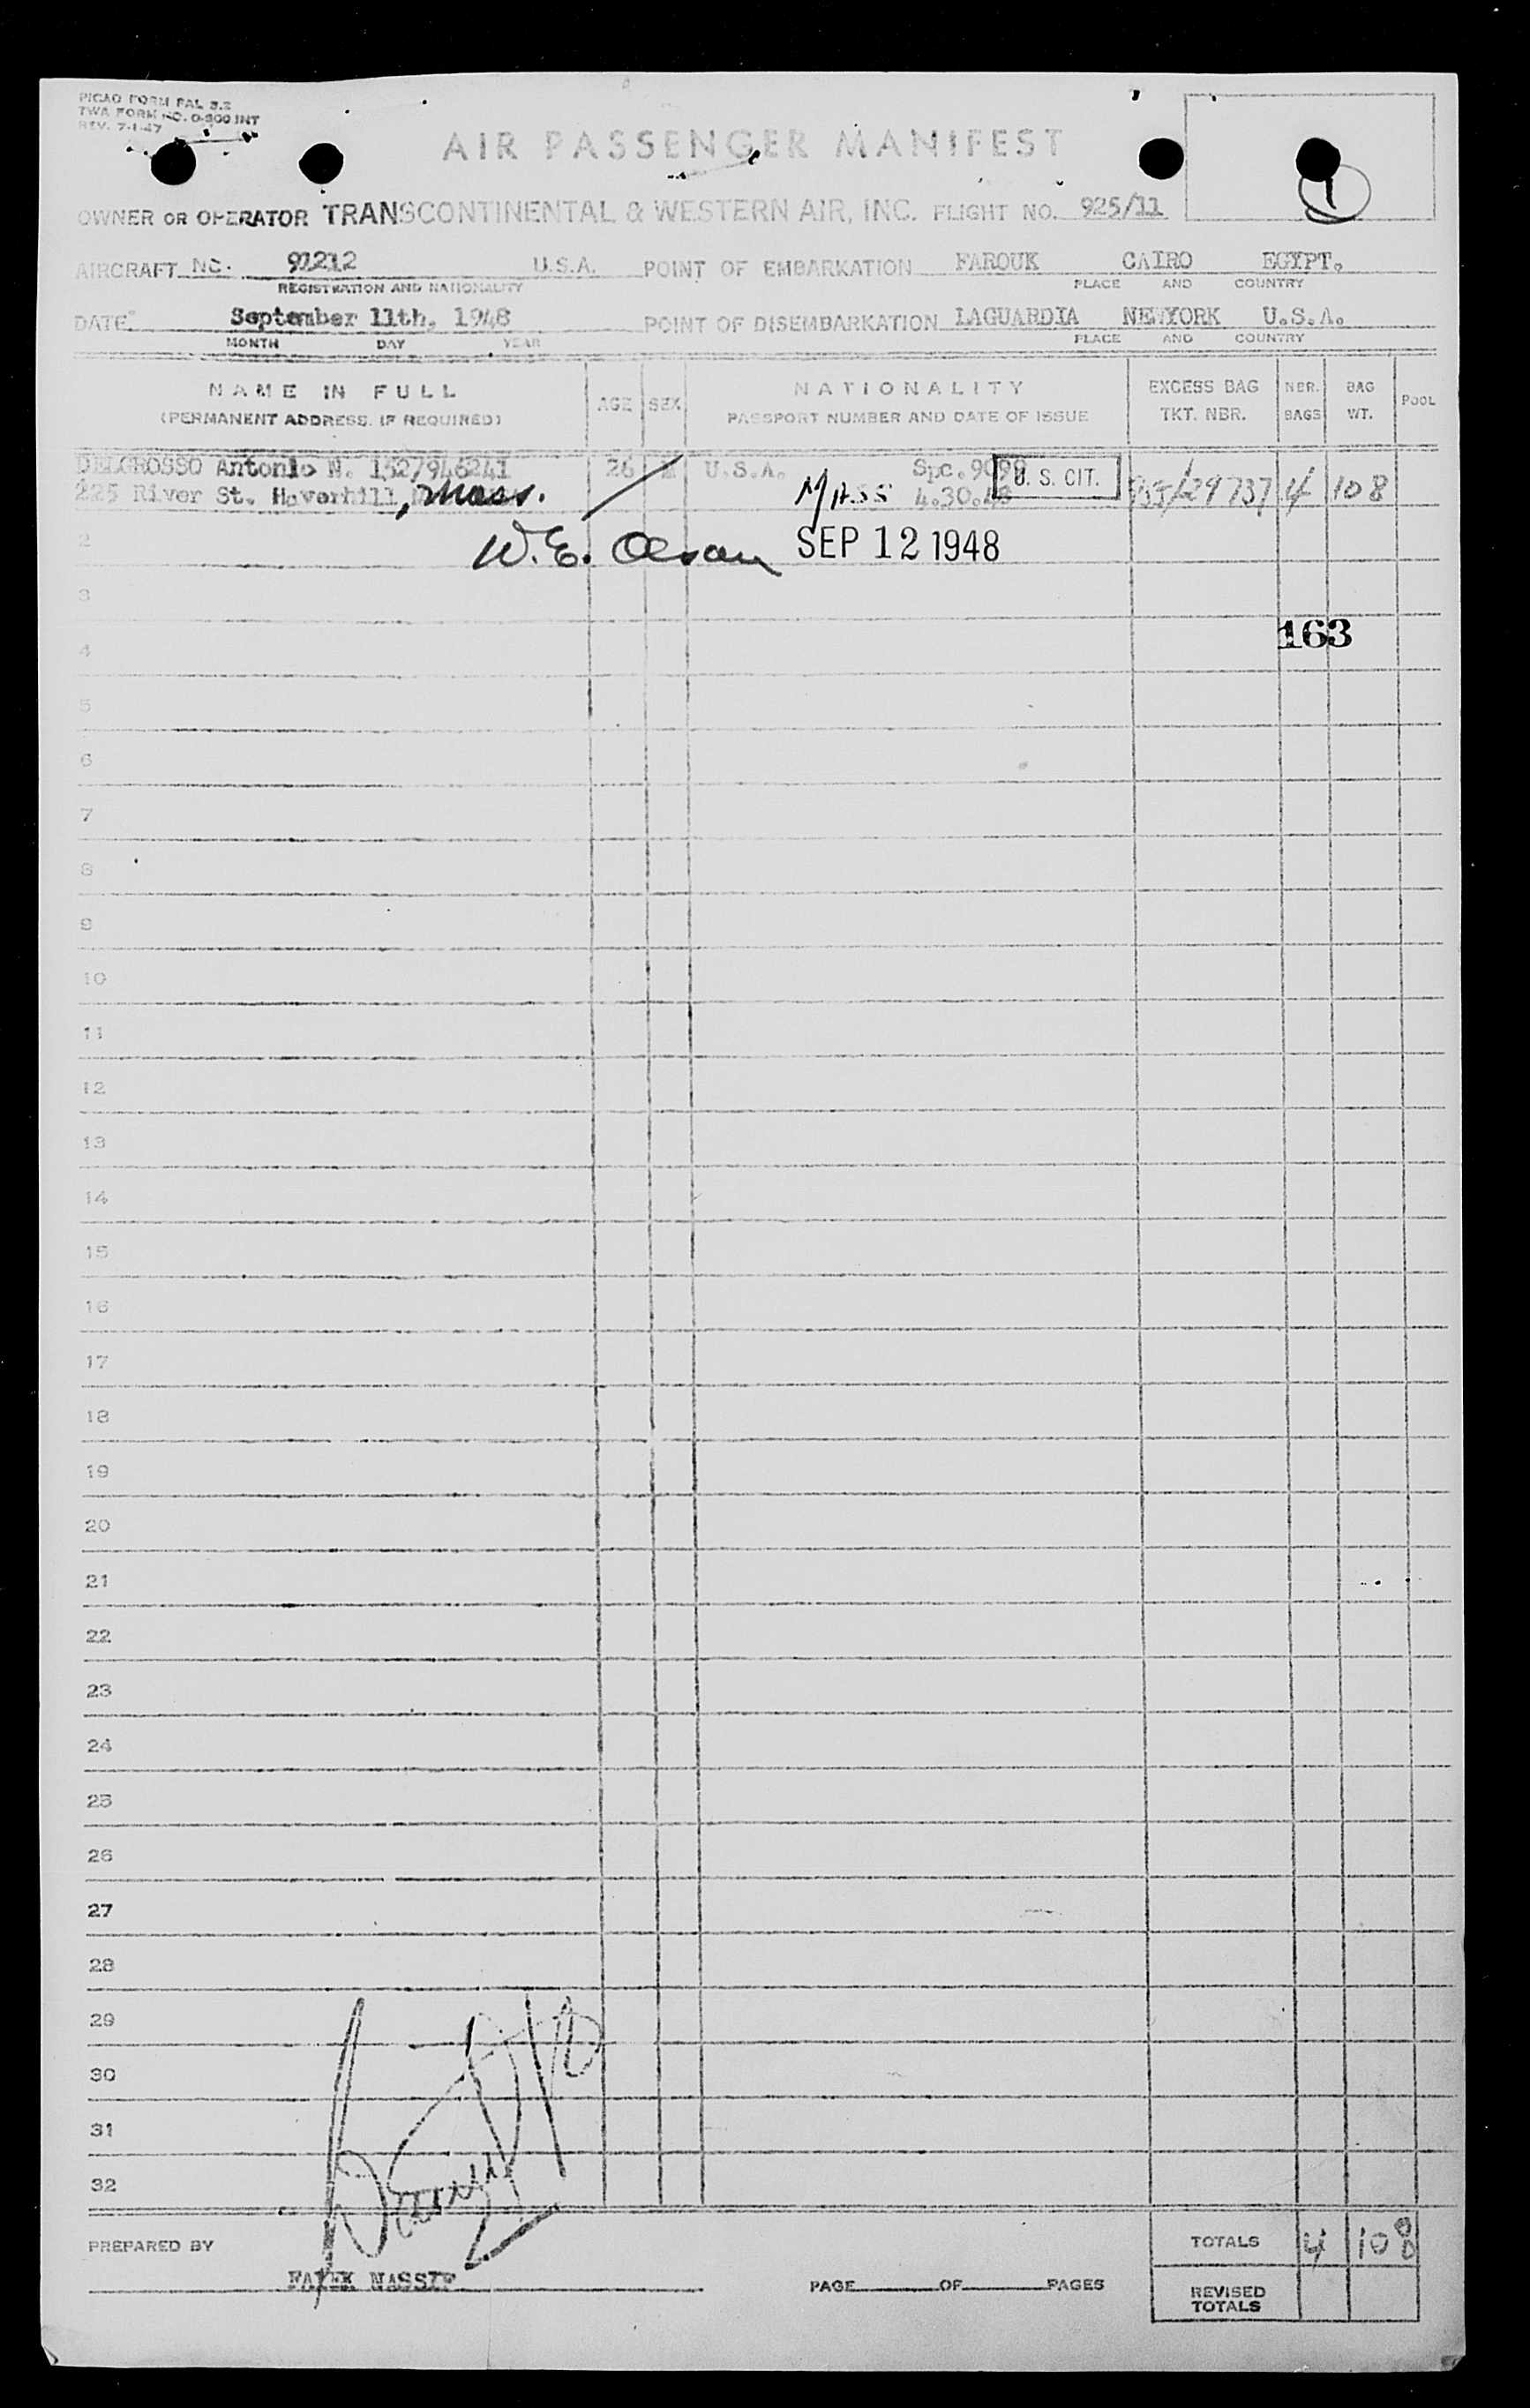 PICAO FORM FAL 3.2
TWA FORM NO. O-800 INT
REV. 7-1-47
AIR PASSENGER MANIFEST
OWNER OR OPERATOR TRANSCONTINENTAL & WESTERN AIR, INC. FLIGHT NO. 925/11
AIRCRAFT NO. 91212 U.S.A. POINT OF EMBARKATION FAROUK CAIRO EGYPT.
REGISTRATION AND NATIONALITY PLACE AND COUNTRY
DATE September 11th. 1948 POINT OF DISEMBARKATION LAGUARDIA NEWYORK U.S.A.
MONTH DAY YEAR PLACE AND COUNTRY
NAME IN FULL AGE SEX NATIONALITY EXCESS BAG NBR. BAG POOL
(PERMANENT ADDRESS. IF REQUIRED) PASSPORT NUMBER AND DATE OF ISSUE TKT. NBR. BAGS WT.
DELGROSSO Antonio N. 1527946241 26 U.S.A. Spc.9099 U. S. CIT.
225 River St. Haverhill, Mass. MASS 4.30.48 29737 4 108
2 W.E. Olson SEP 12 1948
3
163
4
5
6
7
8
9
10
11
12
13
14
15
16
17
18
19
20
21
22
23
24
25
26
27
28
29
30
31
32
PREPARED BY TOTALS 4 108
FAYEK NASSIF PAGE OF PAGES REVISED
TOTALS